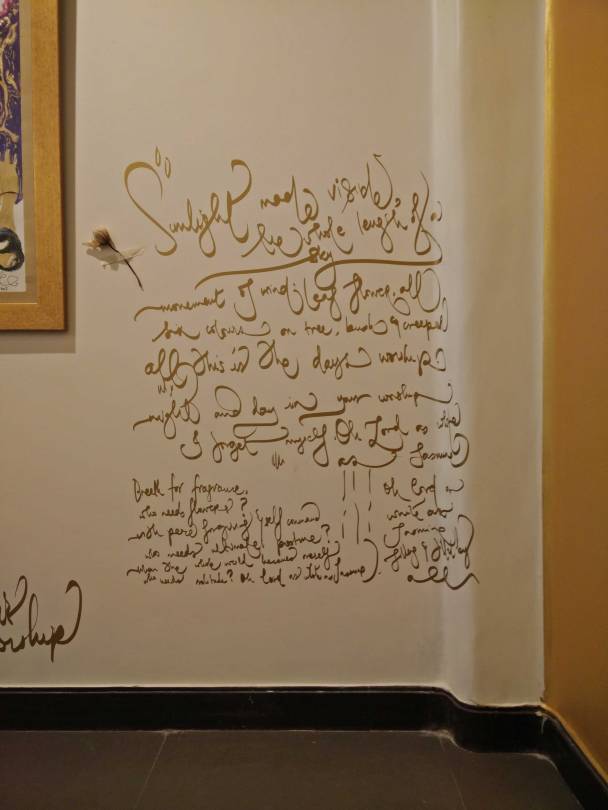 Sunlight made visible,
the whole length of a
sky
movement of wind; leaf flower, all
six colours on tree, bush & creeper
all this is the day's worship.
night and day in your worship
I forget myself Oh Lord as white
as Jasmine
Oh Lord
white as
Jasmine
filling & filling
all
Breath for fragrance,
who needs flowers?
with peace forgiving & self command
who needs ultimate posture?
when the whole world becomes oneself
who needs solitude? Oh Lord as white as Jasmine.
worship